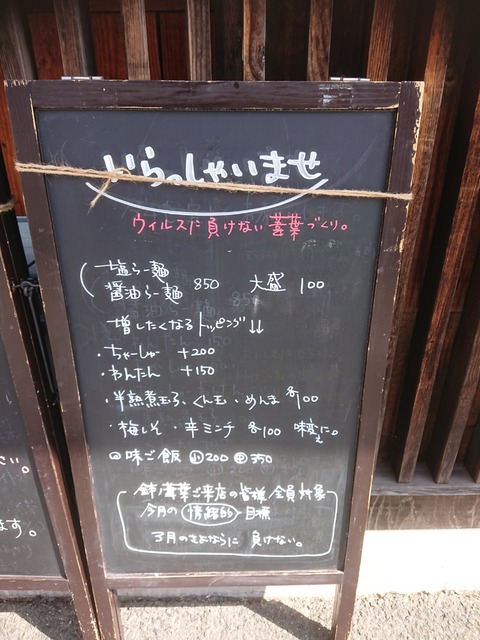 いらっしゃいませ
ウィルスに負けない づくり。
塩らー麺
醤油らー麺 850 大盛 100
増したくなるトッピング↓↓
・ちゃーしゅー +200
・わんたん +150
・半熟煮玉子、くん玉・めんま 各100
・梅しそ・辛ミンチ 各100 味変に。
味ご飯 小200 350
ご来店の皆様 全員対象
今月の 情緒的 目標
3月のさよならに 負けない。
い。
ます。